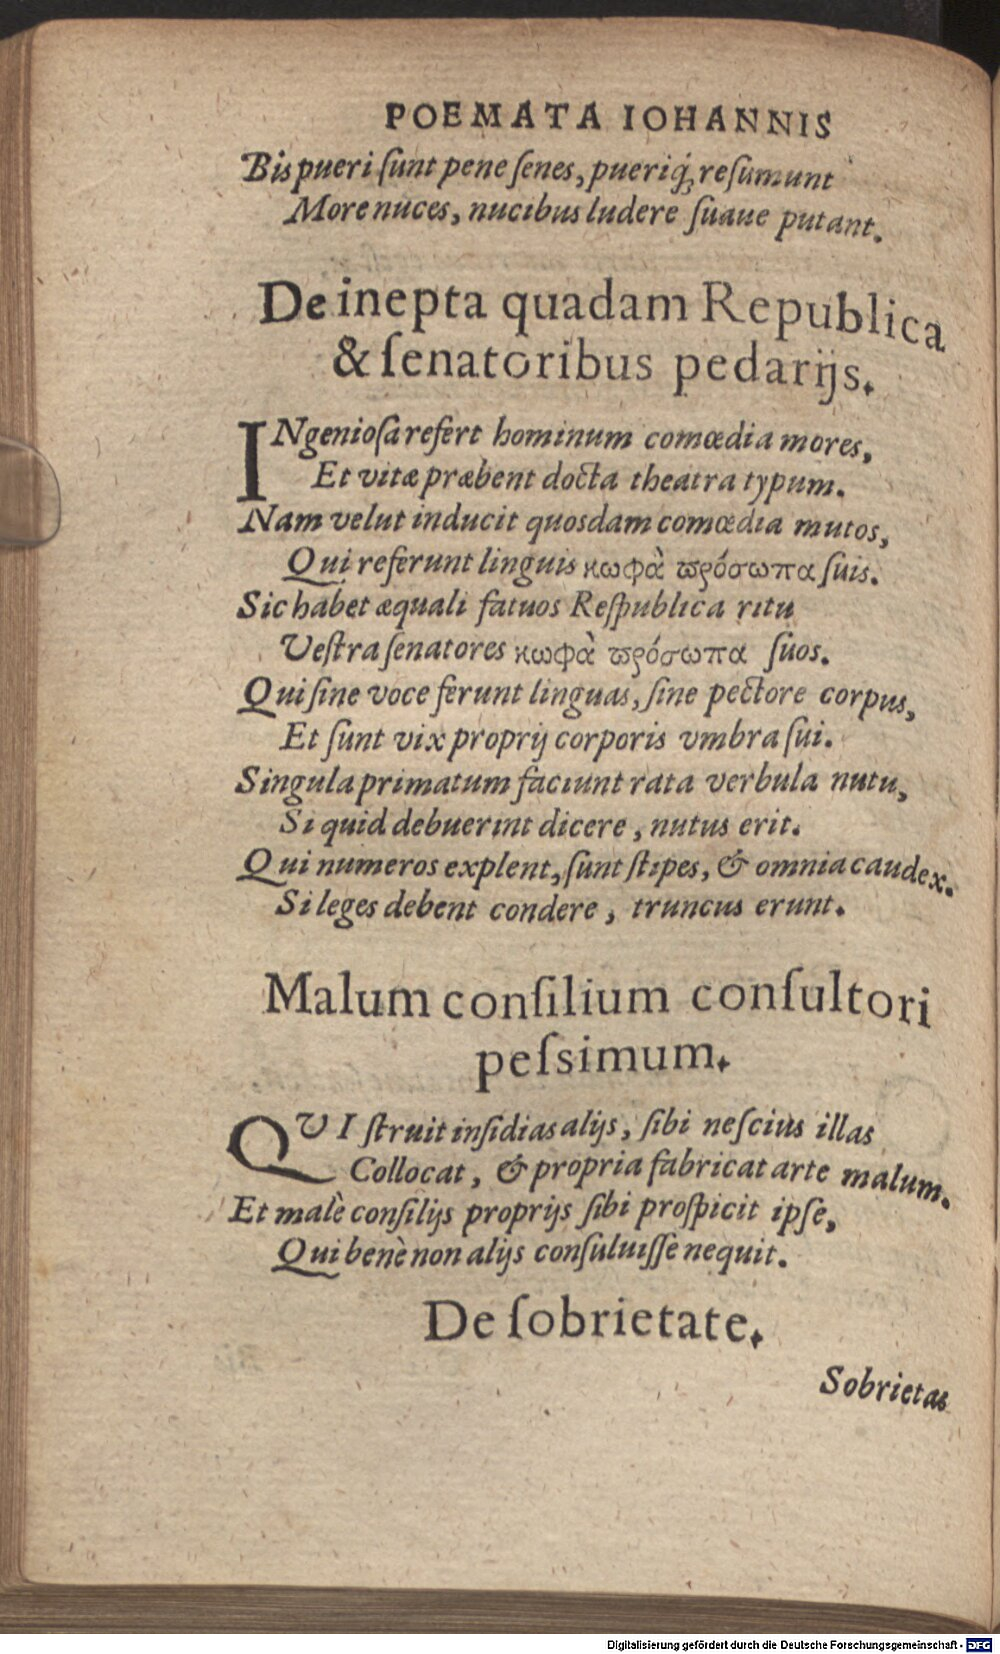 POEMATA IOHANNIS
Bis pueri ſunt pene ſenes, pueriq́; reſumunt
More nuces, nucibus ludere ſuaue putant.
De inepta quadam Republica
& ſenatoribus pedarijs.
INgenioſa refert hominum comœdia mores,
Et vitæ præbent docta theatra typum.
Nam velut inducit quosdam comœdia mutos,
Qui referunt linguis κωφὰ πρόσωπα ſuis.
Sic habet æquali fatuos Reſpublica ritu
Veſtra ſenatores κωφὰ πρόσωπα ſuos.
Qui ſine voce ferunt linguas, ſine pectore corpus,
Et ſunt vix proprij corporis vmbra ſui.
Singula primatum faciunt rata verbula nutu,
Si quid debuerint dicere, nutus erit.
Qui numeros explent, ſunt ſtipes, & omnia caudex.
Si leges debent condere, truncus erunt.
Malum conſilium conſultori
peſsimum.
QVI ſtruit inſidias alijs, ſibi neſcius illas
Collocat, & propria fabricat arte malum.
Et malè conſilijs proprijs ſibi proſpicit ipſe,
Qui benè non alijs conſuluiſſe nequit.
De ſobrietate.
Sobrietas
Digitalisierung gefördert durch die Deutsche Forschungsgemeinschaft - DFG